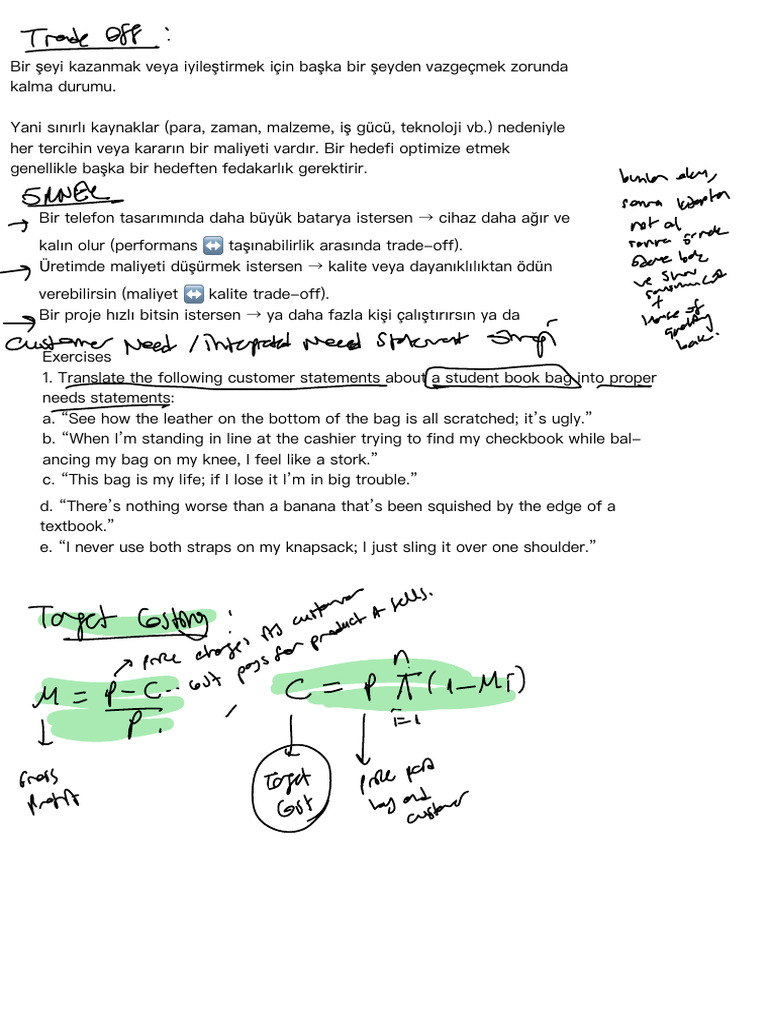 Trade Off :
Bir şeyi kazanmak veya iyileştirmek için başka bir şeyden vazgeçmek zorunda
kalma durumu.
Yani sınırlı kaynaklar (para, zaman, malzeme, iş gücü, teknoloji vb.) nedeniyle
her tercihin veya kararın bir maliyeti vardır. Bir hedefi optimize etmek
genellikle başka bir hedeften fedakarlık gerektirir.
ÖRNEK
→ Bir telefon tasarımında daha büyük batarya istersen → cihaz daha ağır ve
kalın olur (performans ↔️ taşınabilirlik arasında trade-off).
→ Üretimde maliyeti düşürmek istersen → kalite veya dayanıklılıktan ödün
verebilirsin (maliyet ↔️ kalite trade-off).
→ Bir proje hızlı bitsin istersen → ya daha fazla kişi çalıştırırsın ya da
sonra
not al
sonra örnek
ve
+
House of
Quality
Customer Need / Integrated Need Statement
Exercises
1. Translate the following customer statements about a student book bag into proper
needs statements:
a. “See how the leather on the bottom of the bag is all scratched; it’s ugly.”
b. “When I’m standing in line at the cashier trying to find my checkbook while bal-
ancing my bag on my knee, I feel like a stork.”
c. “This bag is my life; if I lose it I’m in big trouble.”
d. “There’s nothing worse than a banana that’s been squished by the edge of a
textbook.”
e. “I never use both straps on my knapsack; I just sling it over one shoulder.”
Target Costing :
→ price charges its customer
M = P - C / P
cost pays for product it sells.
C = P n π i=1 (1 - Mi)
Gross
Profit
Target
Cost
price paid
by end
customer